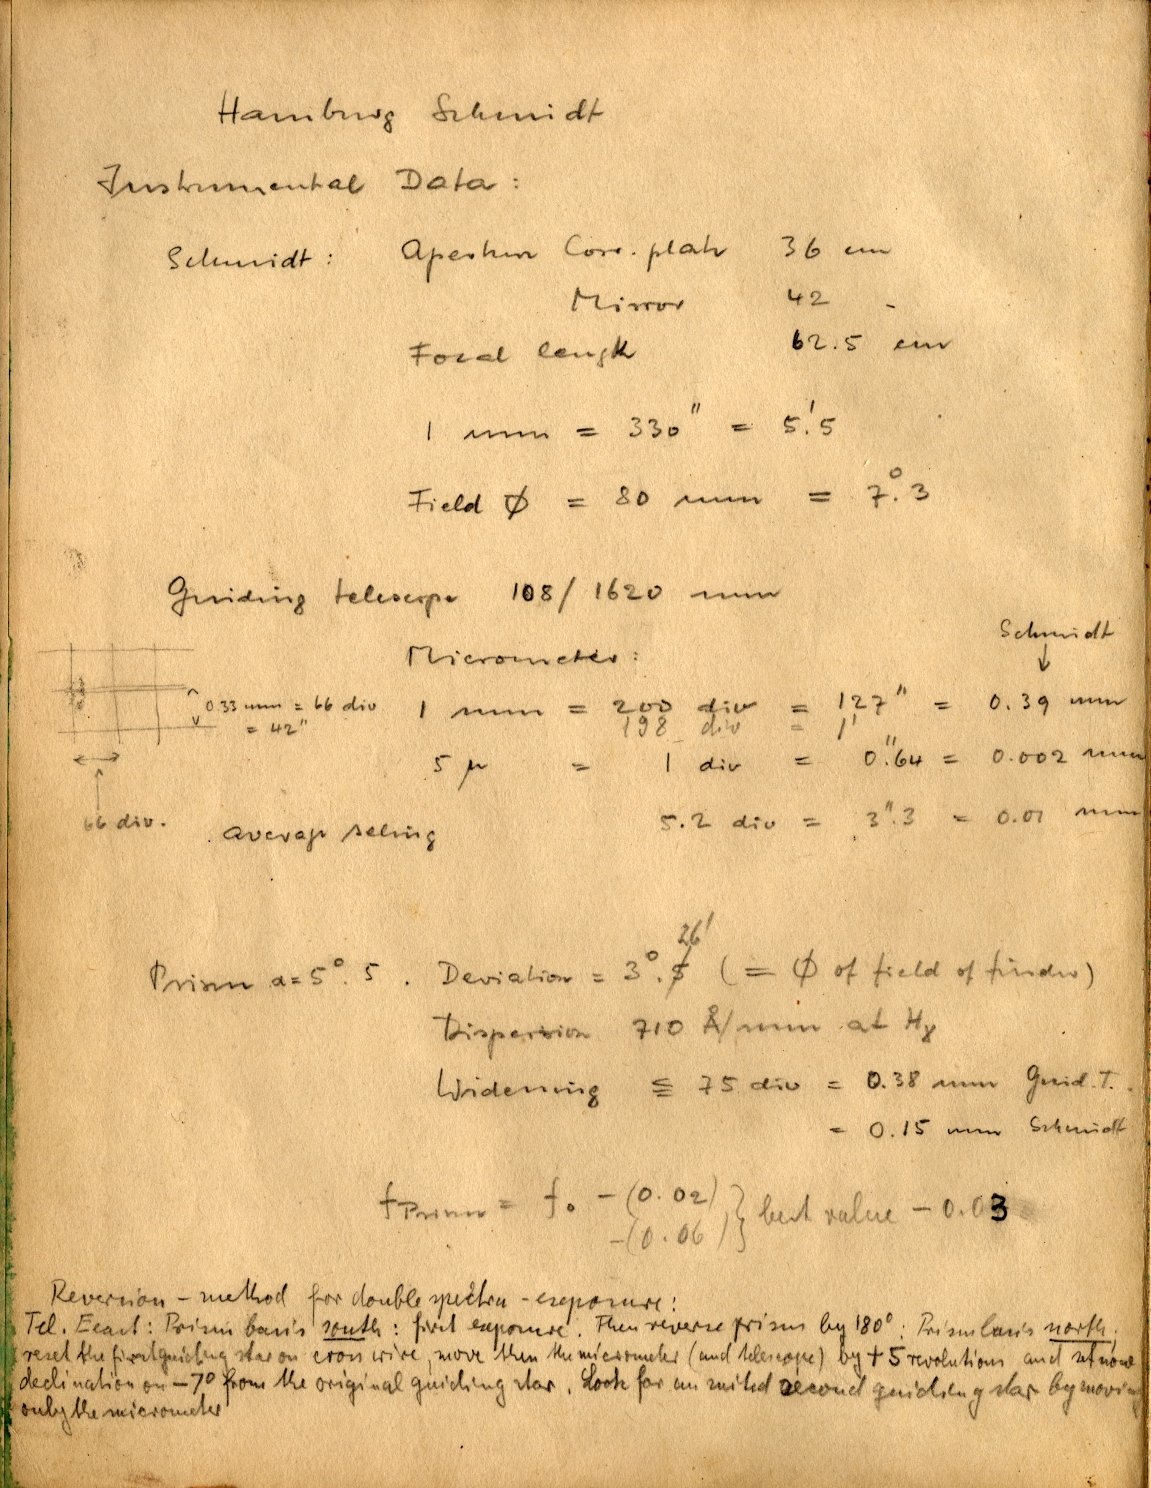 Hamburg Schmidt
Instrumental Data :
Schmidt : Aperture Corr. plate 36 cm
Mirror 42 -
Focal length 62.5 cm
1 mm = 330" = 5!5
Field ∅ = 80 mm = 7°.3
Guiding telescope 108/1620 mm
Schmidt
↓
Micrometer :
0.33 mm = 66 div
= 42"
1 mm = 200 div = 127" = 0.39 mm
198 div = 1'
5 μ = 1 div = 0".64 = 0.002 mm
66 div.
average seeing 5.2 div = 3".3 = 0.01 mm
26'
Prism α = 5°.5 . Deviation = 3°.5 ( = ∅ of field of finder)
Dispersion 710 Å/mm at Hγ
Widening ≦ 75 div = 0.38 mm Guid. T.
= 0.15 mm Schmidt
f Prism = f₀ - (0.02) } best value - 0.03
- (0.06) }
Reversion - method for double spectra - exposure :
Tel. East : Prism basis south : first exposure. Then reverse prism by 180° : Prism basis north ;
reset the first guiding star on cross wire, move then the micrometer (and telescope) by + 5 revolutions and set now
declination on - 7° from the original guiding star. Look for an suited second guiding star by moving
only the micrometer